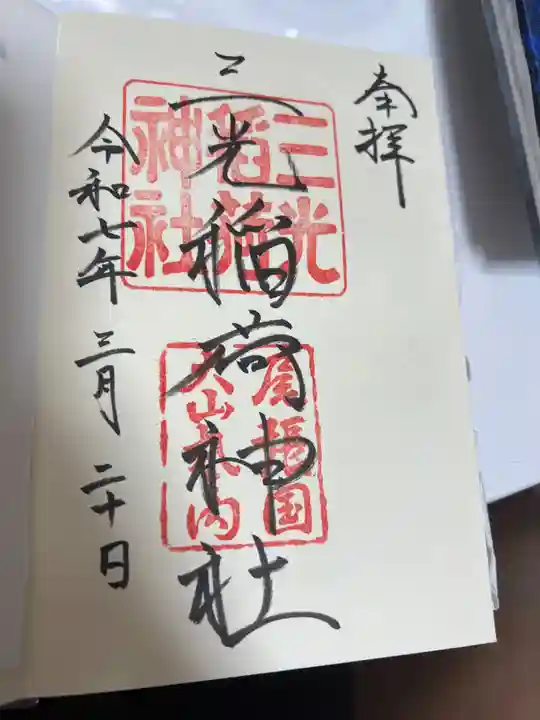 奉拝
三光稲荷神社
三光
稲荷
神社
尾張国
犬山城内
令和七年 三月 二十日